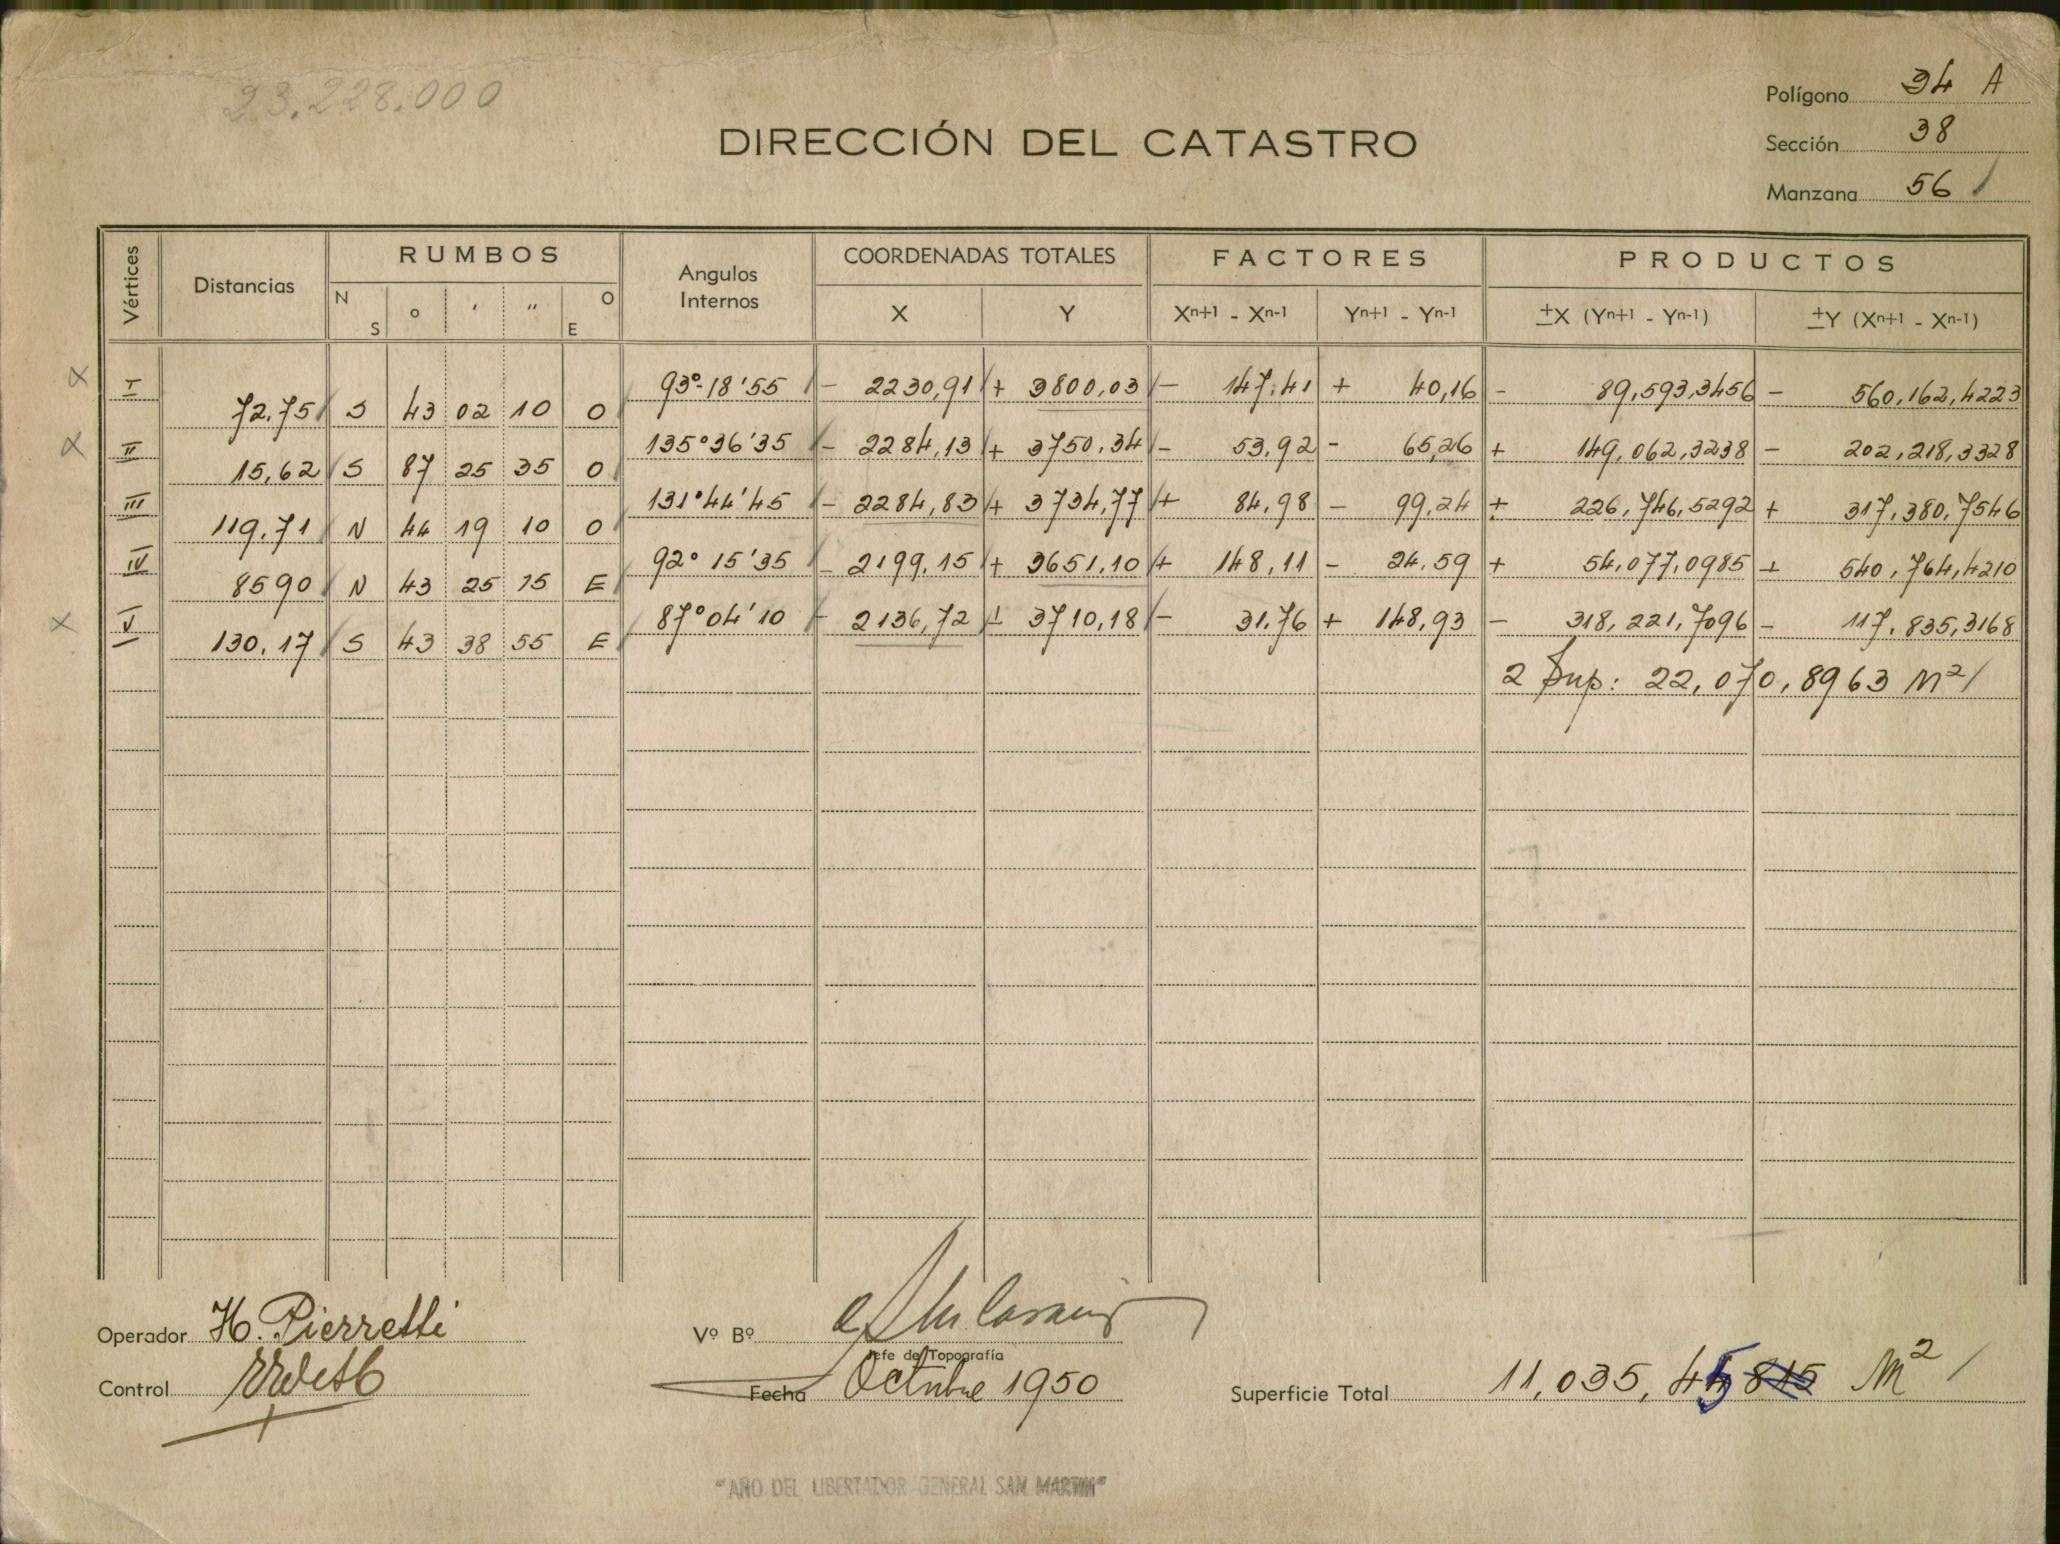 23.228.000
Polígono 34 A
DIRECCIÓN DEL CATASTRO
Sección 38
Manzana 56
Vértices Distancias RUMBOS Angulos Internos COORDENADAS TOTALES FACTORES PRODUCTOS
N S ° ' " O E X Y Xn+1 - Xn-1 Yn+1 - Yn-1 ±X (Yn+1 - Yn-1) ±Y (Xn+1 - Xn-1)
x I 93°-18'55 - 2230,91 + 3800,03 - 147,41 + 40,16 - 89,593,3456 - 560,162,4223
72,75 S 43 02 10 O
x II 135°36'35 - 2284,13 + 3750,34 - 53,92 - 65,26 + 149,062,3238 - 202,218,3328
15,62 S 87 25 35 O
III 131°44'45 - 2284,83 + 3734,77 + 84,98 - 99,24 + 226,746,5292 + 317,380,7546
119,71 N 44 19 10 O
IV 92° 15'35 - 2199,15 + 3651,10 + 148,11 - 24,59 + 54,077,0985 + 540,764,4210
8590 N 43 25 15 E
x V 87°04'10 - 2136,72 + 3710,18 - 31,76 + 148,93 - 318,221,7096 - 117,835,3168
130,17 S 43 38 55 E
2 Sup: 22,070,8963 M²
Operador H. Pierretti
Vº Bº
Jefe de Topografía
Control
Fecha Octubre 1950
Superficie Total 11,035,45 M²
"AÑO DEL LIBERTADOR GENERAL SAN MARTIN"